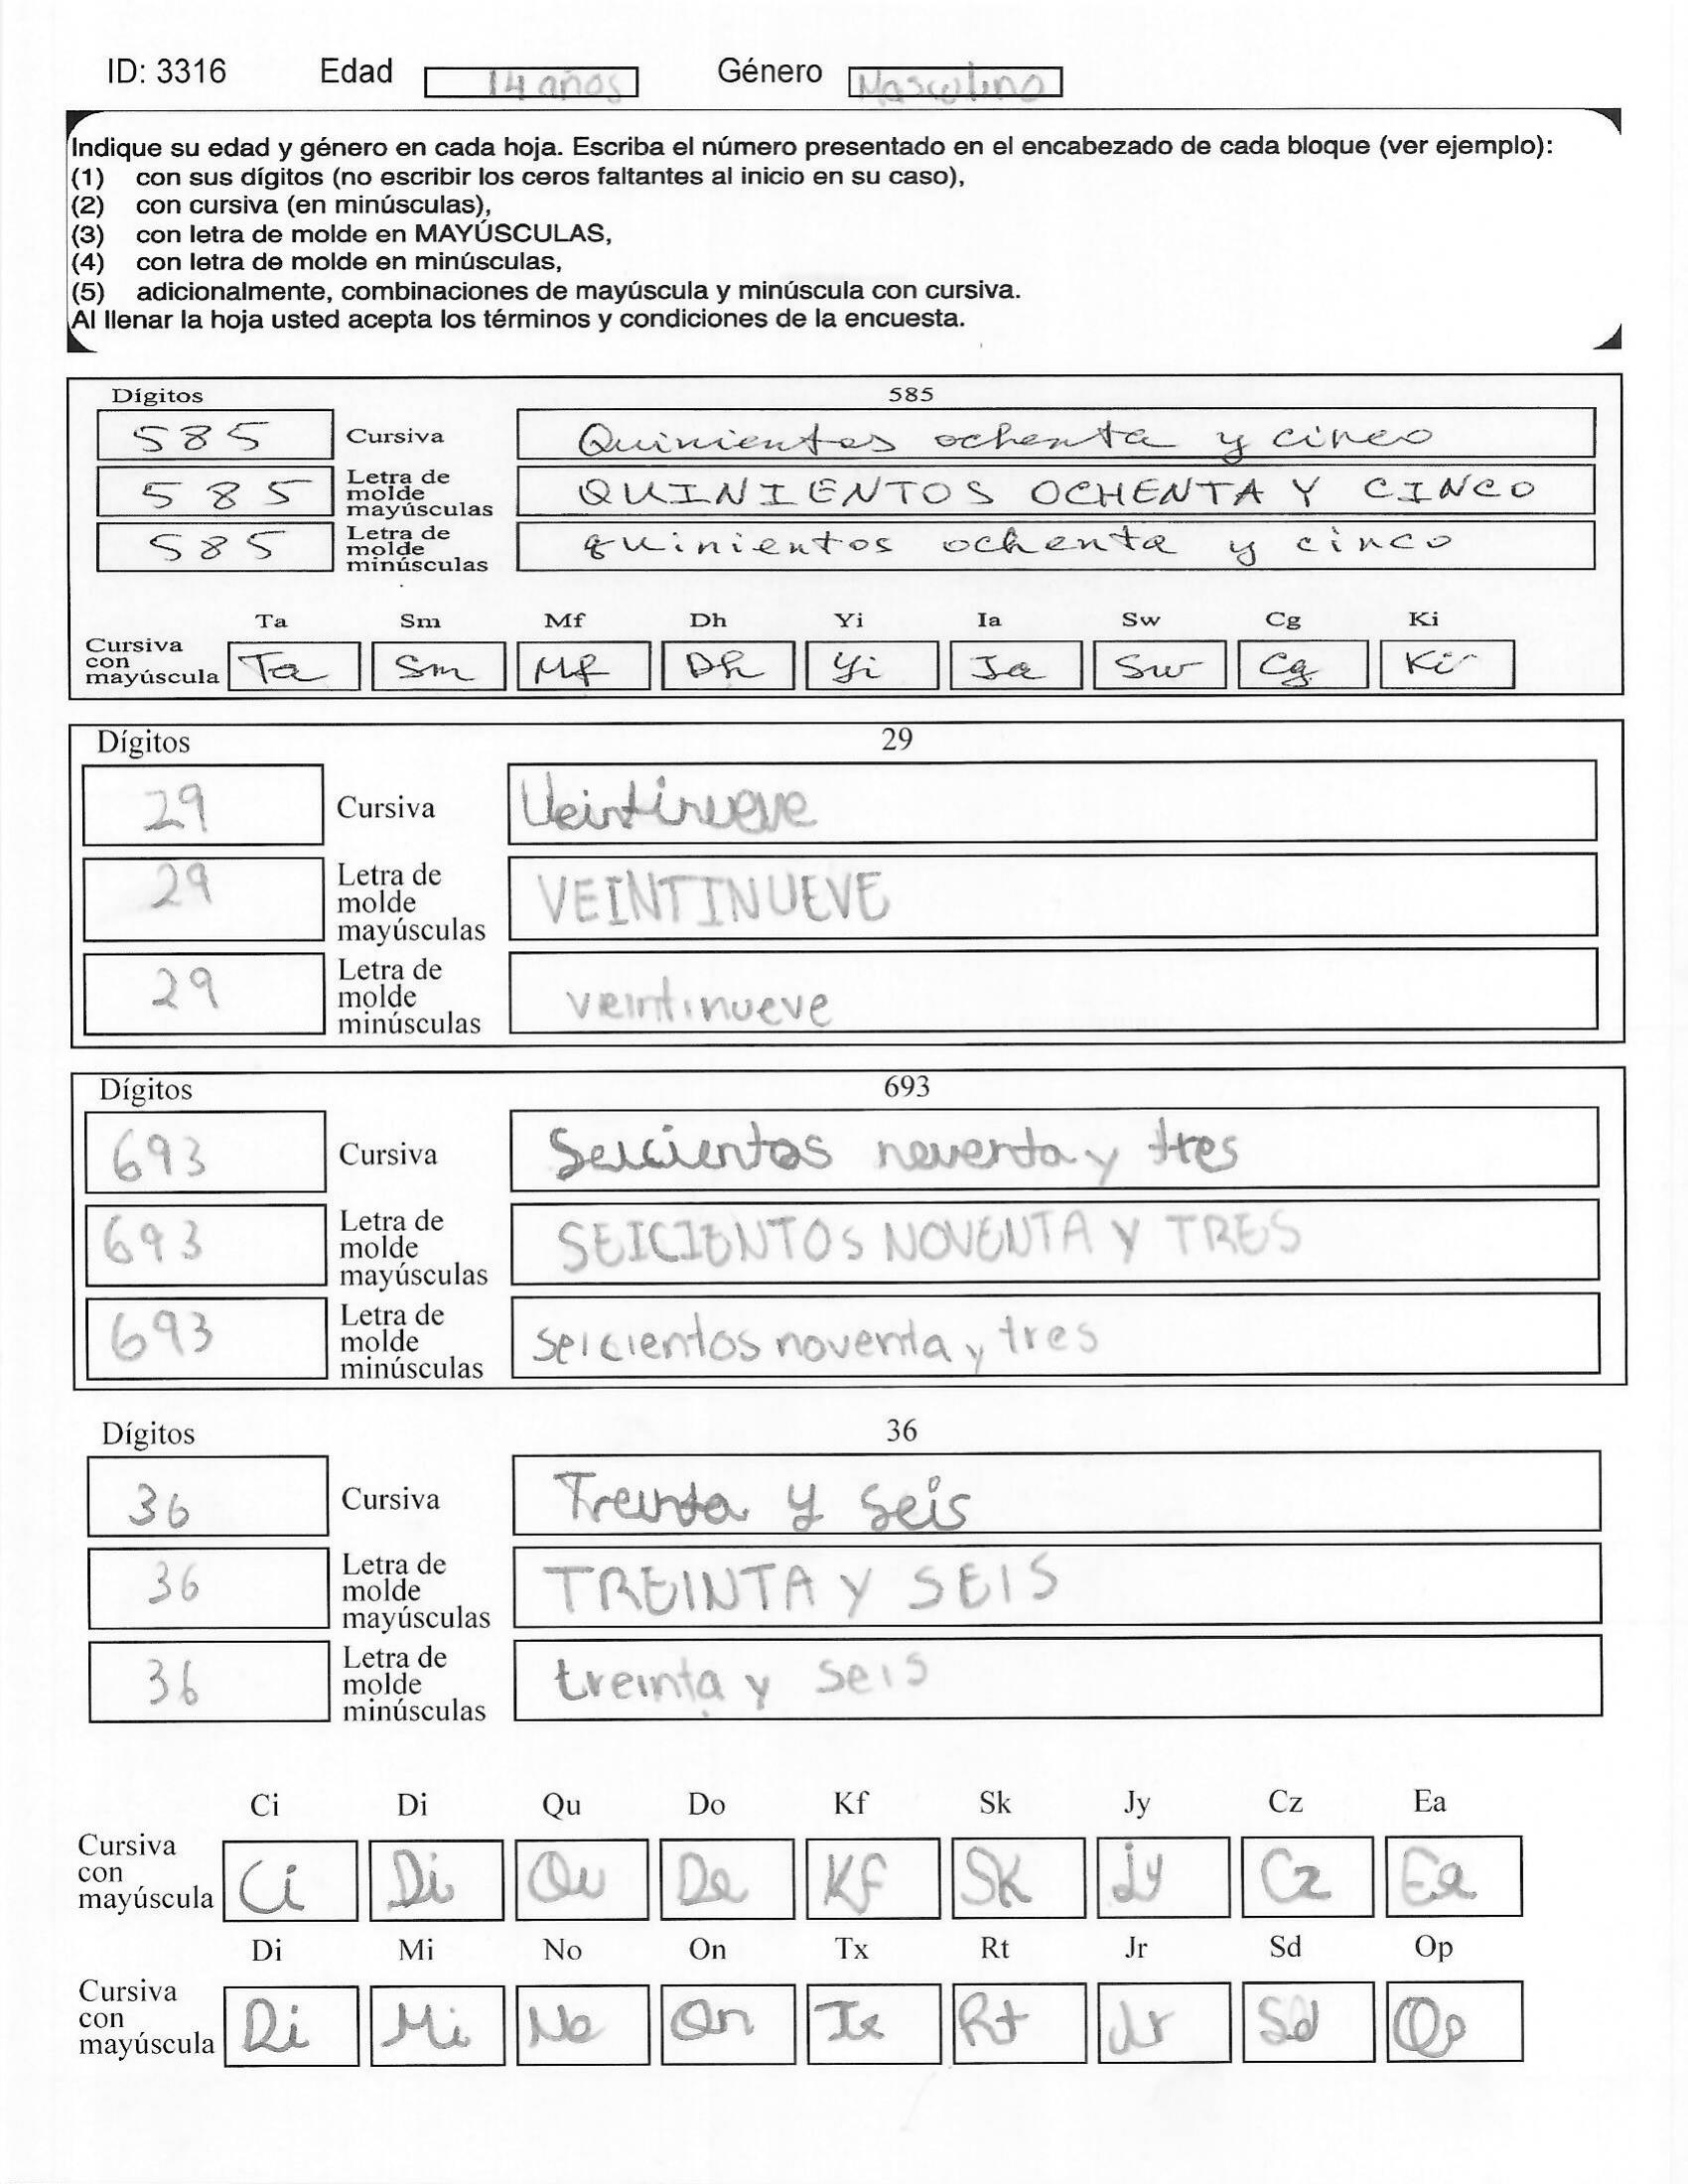 ID: 3316 Edad 14 años Género Masculino
Indique su edad y género en cada hoja. Escriba el número presentado en el encabezado de cada bloque (ver ejemplo):
(1) con sus dígitos (no escribir los ceros faltantes al inicio en su caso),
(2) con cursiva (en minúsculas),
(3) con letra de molde en MAYÚSCULAS,
(4) con letra de molde en minúsculas,
(5) adicionalmente, combinaciones de mayúscula y minúscula con cursiva.
Al llenar la hoja usted acepta los términos y condiciones de la encuesta.
Dígitos 585
585 Cursiva Quinientos ochenta y cinco
585 Letra de molde mayúsculas QUINIENTOS OCHENTA Y CINCO
585 Letra de molde minúsculas quinientos ochenta y cinco
Ta Sm Mf Dh Yi Ia Sw Cg Ki
Cursiva con mayúscula Ta Sm Mf Dh Yi Ia Sw Cg Ki
Dígitos 29
29 Cursiva Veintinueve
29 Letra de molde mayúsculas VEINTINUEVE
29 Letra de molde minúsculas veintinueve
Dígitos 693
693 Cursiva Seicientos neventa y tres
693 Letra de molde mayúsculas SEICIENTOS NOVENTA Y TRES
693 Letra de molde minúsculas seicientos noventa y tres
Dígitos 36
36 Cursiva Treinta y seis
36 Letra de molde mayúsculas TREINTA Y SEIS
36 Letra de molde minúsculas treinta y seis
Ci Di Qu Do Kf Sk Jy Cz Ea
Cursiva con mayúscula Ci Di Qu Do Kf Sk Jy Cz Ea
Di Mi No On Tx Rt Jr Sd Op
Cursiva con mayúscula Di Mi No On Tx Rt Jr Sd Op